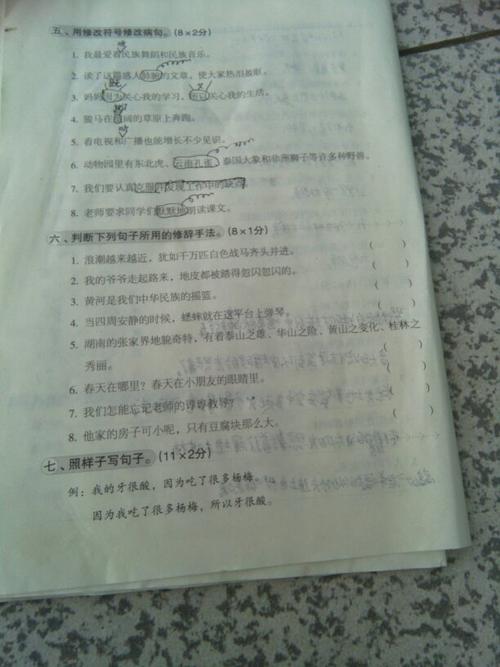 五、用修改符号修改病句。(8×2分)
1. 我最爱看民族舞蹈和民族音乐。
2. 读了这篇感人的文章,使大家热泪盈眶。
3. 妈妈因为关心我的学习,所以关心我的生活。
4. 骏马在阔的草原上奔跑。
5. 看电视和广播也能增长不少见识。
6. 动物园里有东北虎、云南孔雀、泰国大象和非洲狮子等许多种野兽。
7. 我们要认真克服并发现工作中的缺点。
8. 老师要求同学们默默地朗读课文。
六、判断下列句子所用的修辞手法。(8×1分)
1. 浪潮越来越近,犹如千万匹白色战马齐头并进。 ( )
2. 我的爷爷走起路来,地皮都被踏得忽闪忽闪的。 ( )
3. 黄河是我们中华民族的摇篮。 ( )
4. 当四周安静的时候,蟋蟀就在这平台上弹琴。 ( )
5. 湖南的张家界地貌奇特,有着泰山之雄、华山之险、黄山之变化、桂林之
秀丽。 ( )
6. 春天在哪里?春天在小朋友的眼睛里。 ( )
7. 我们怎能忘记老师的谆谆教导? ( )
8. 他家的房子可小呢,只有豆腐块那么大。 ( )
七、照样子写句子。(11×2分)
例:我的牙很酸,因为吃了很多杨梅。
因为我吃了很多杨梅,所以牙很酸。